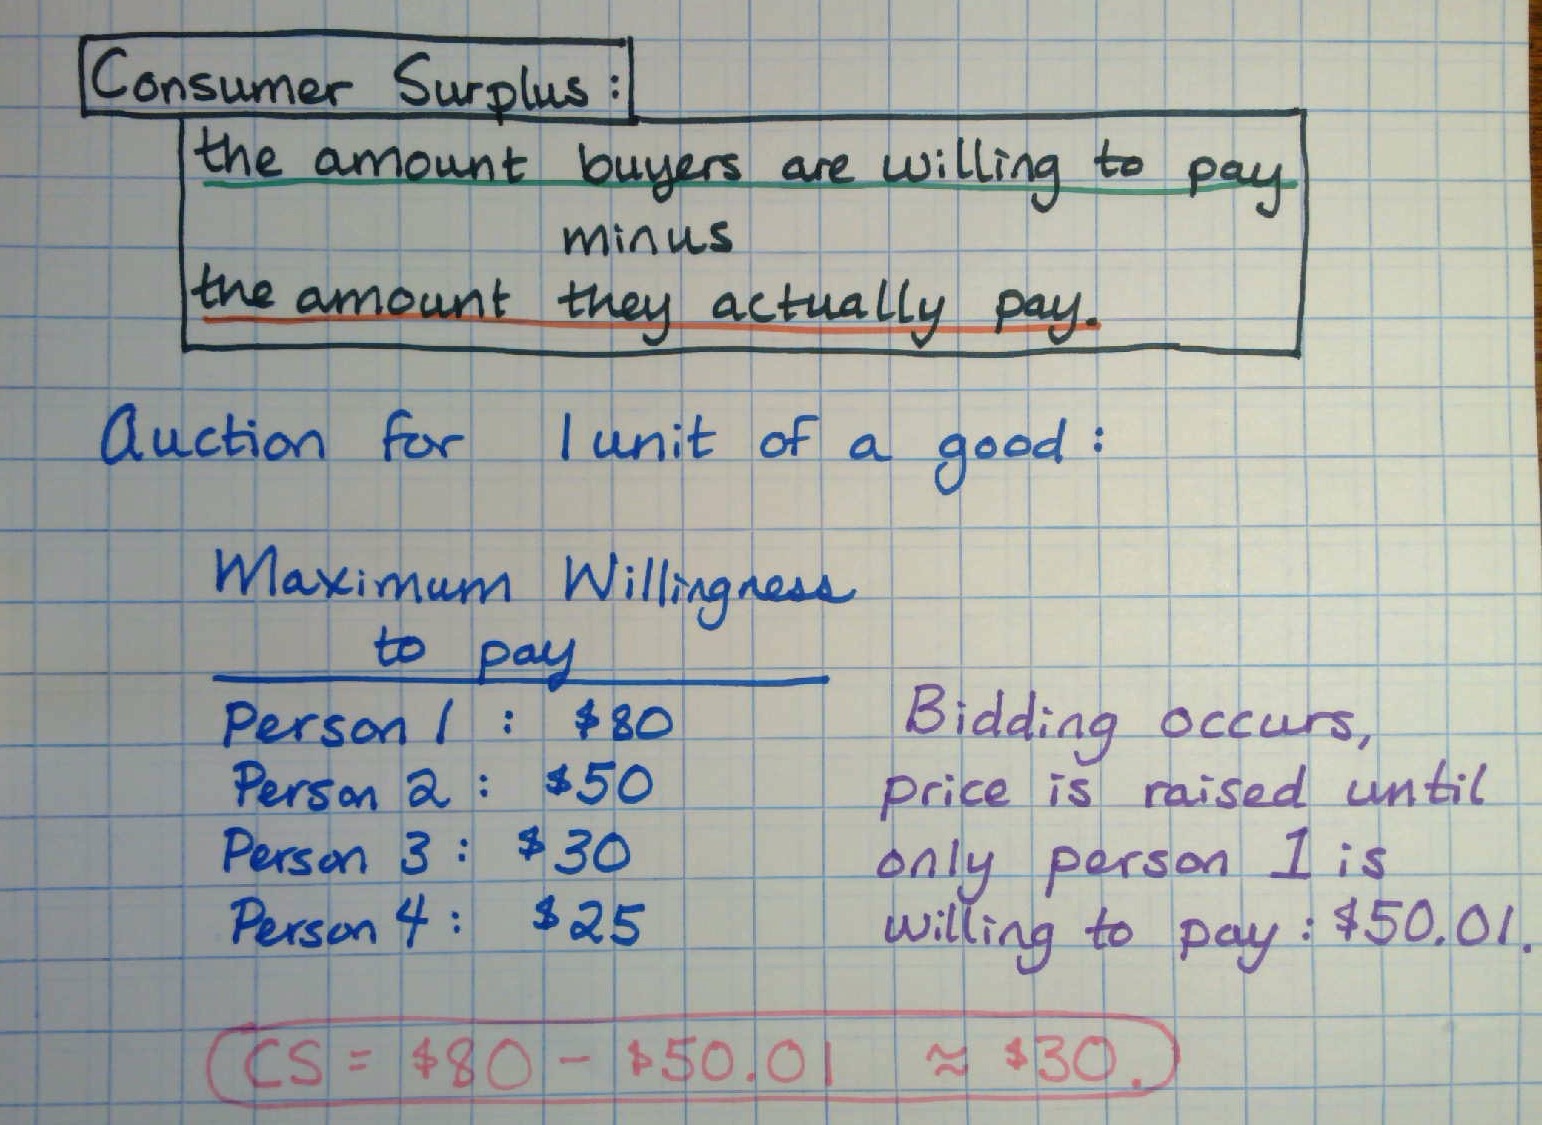 Consumer Surplus:
the amount buyers are willing to pay
minus
the amount they actually pay.
Auction for 1 unit of a good:
Maximum Willingness
to pay
Person 1 : $80
Person 2 : $50
Person 3 : $30
Person 4 : $25
Bidding occurs,
price is raised until
only person 1 is
willing to pay : $50.01.
CS = $80 - $50.01 ≈ $30.